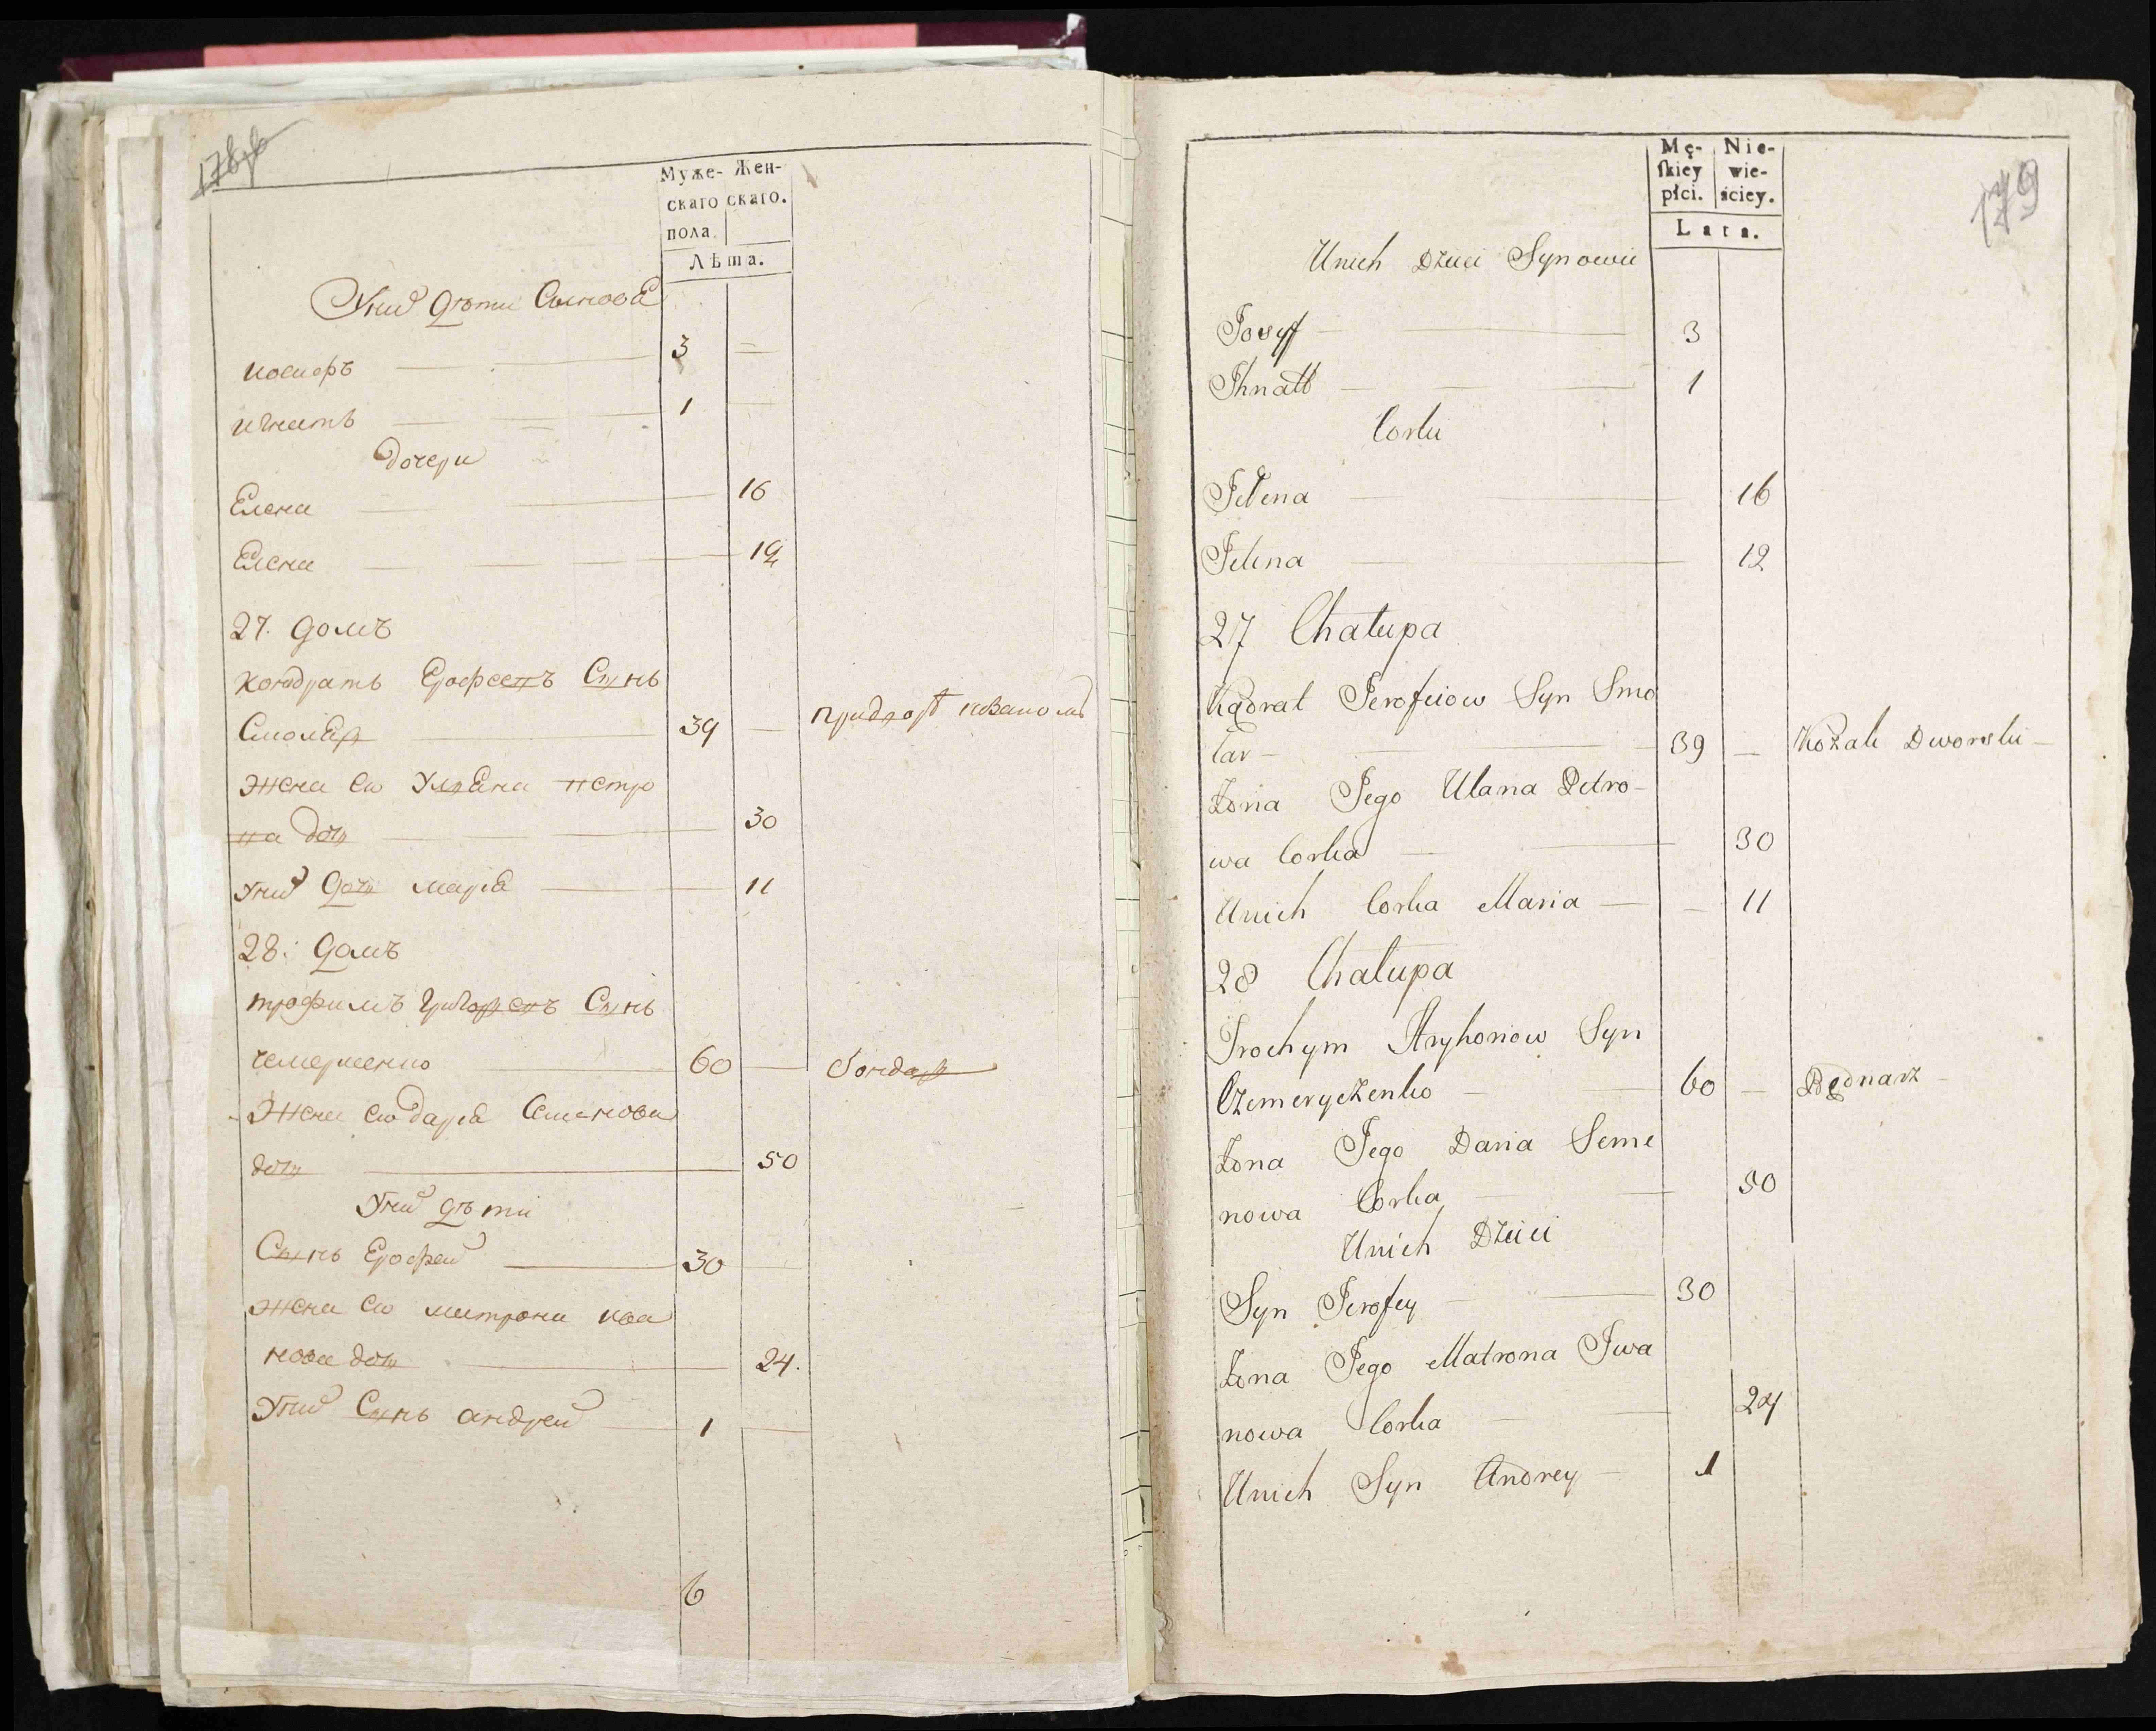 Муже- Жен-
скаго скаго.
пола.
Лѣта.
Унихъ дѣти Сыновя
иосифъ 3
игнатъ 1
дочери
Елена 16
Елена 12
27. домъ
кондратъ Ерофеевъ Сынъ
Смоляр 39
жена его Уляна петро
ва дочь 30
Унихъ дочь марiя 11
28: домъ
трофимъ Григорьевъ Сынъ
чемерченко 60 бондарь
Жена его дарiя Семенова
дочь 50
Унихъ дѣти
Сынъ Ерофей 30
жена его матрона ива
нова дочь 24.
Унихъ Сынъ андрей 1
6
179
Mę- Nie-
skiey wie-
płci. ściey.
Lata.
Unich Dzieci Synowie
Josyff 3
Ihnatt 1
Corki
Jelena 16
Jelena 12
27 Chałupa
Kądrat Jerofeiow Syn Smo
lar 39 — Kozak Dworski
Zona Jego Ulana Petro-
wa Corka 30
Unich Corka Maria 11
28 Chałupa
Trochym Hryhoriow Syn
Czemeryczenko 60 — Będnarz
Zona Jego Daria Seme
nowa Corka 50
Unich Dzieci
Syn Jerofey 30
Zona Jego Matrona Iwa
nowa Corka 24
Unich Syn Andrey 1